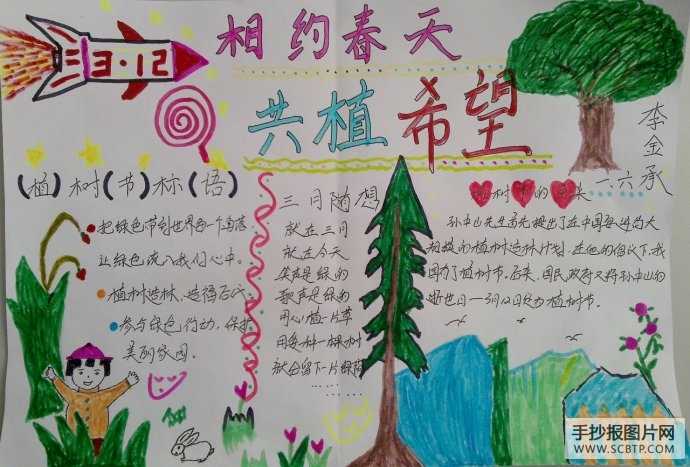 3·12
相约春天
共植希望
李金承
一、六
(植)树(节)标(语)
把绿色带到世界每一个角落
让绿色流入我们心中。
植树造林,造福后代。
参与绿色行动,保护
美丽家园。
三月随想
就在三月
就在今天
笑声是绿的
歌声是绿的
用心植一片草
用爱种一棵树
就会留下一片绿荫
树节的由来
孙中山先生首先提出了在中国
规模的植树造林计划,在他的倡议下,我
国有了植树节。后来,国民政府又将孙中山的
逝世日—3月12日定为植树节。
手抄报图片网
WWW.SCBTP.COM